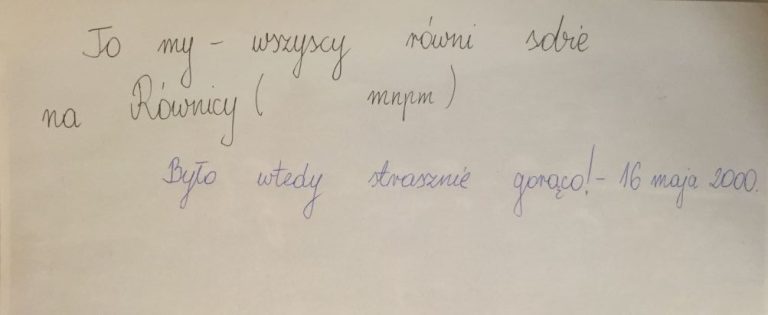 To my - wszyscy równi sobie
na Równicy ( mnpm )
Było wtedy strasznie gorąco! - 16 maja 2000.